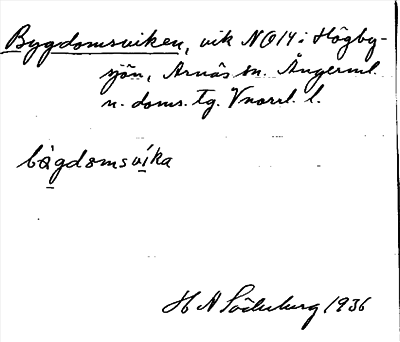 Bygdomsviken, vik NO14 i Högby-
sjön, Arnäs sn. Ångerml.
n. doms. Tg. Vnorrl. l.
bàgdomsvíka
H A Söderberg 1936